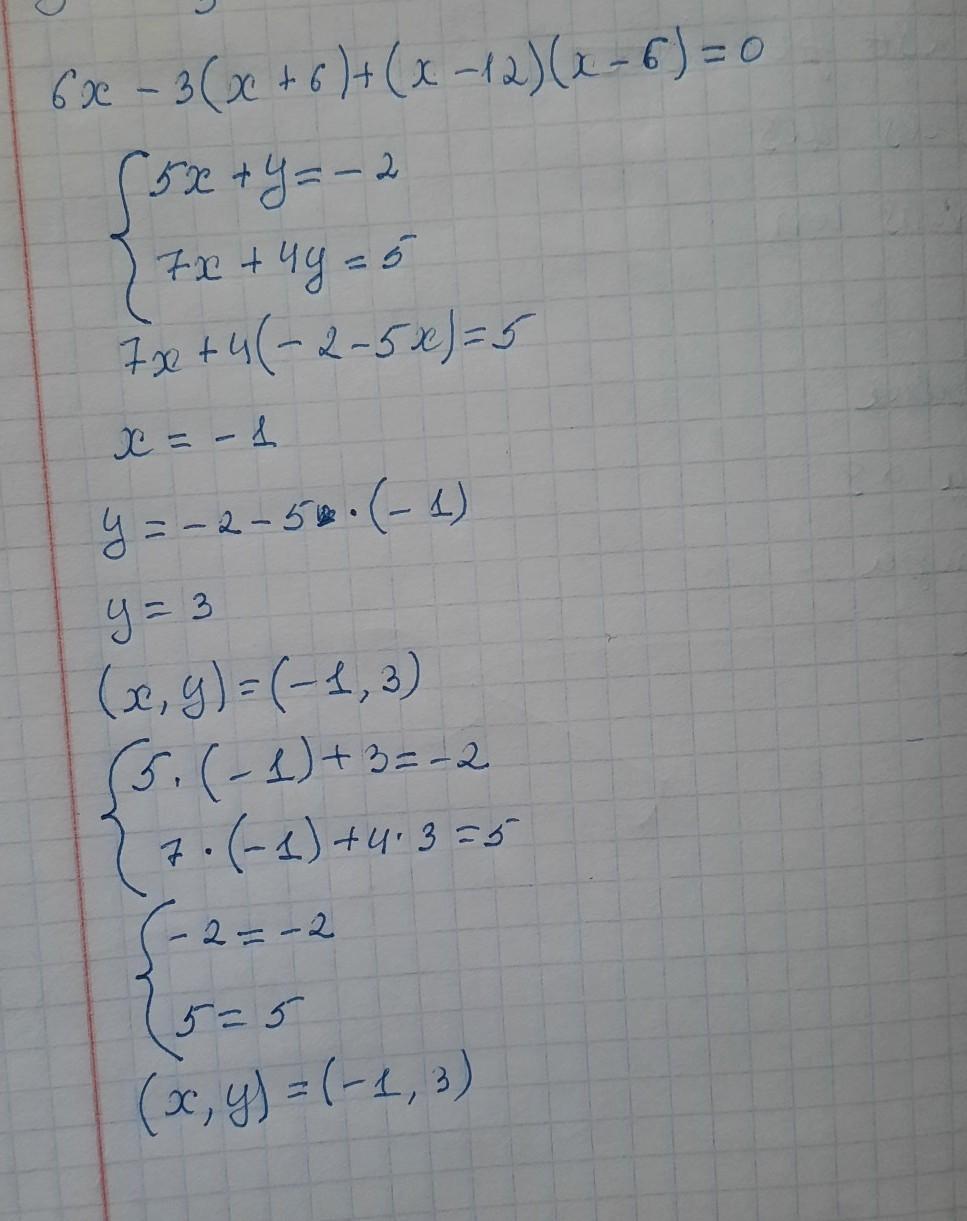 6x - 3(x + 6) + (x - 12)(x - 6) = 0
5x + y = - 2
7x + 4y = 5
7x + 4(- 2 - 5x) = 5
x = - 1
y = - 2 - 5 · (- 1)
y = 3
(x, y) = (- 1, 3)
5 · (- 1) + 3 = - 2
7 · (- 1) + 4 · 3 = 5
- 2 = - 2
5 = 5
(x, y) = (- 1, 3)